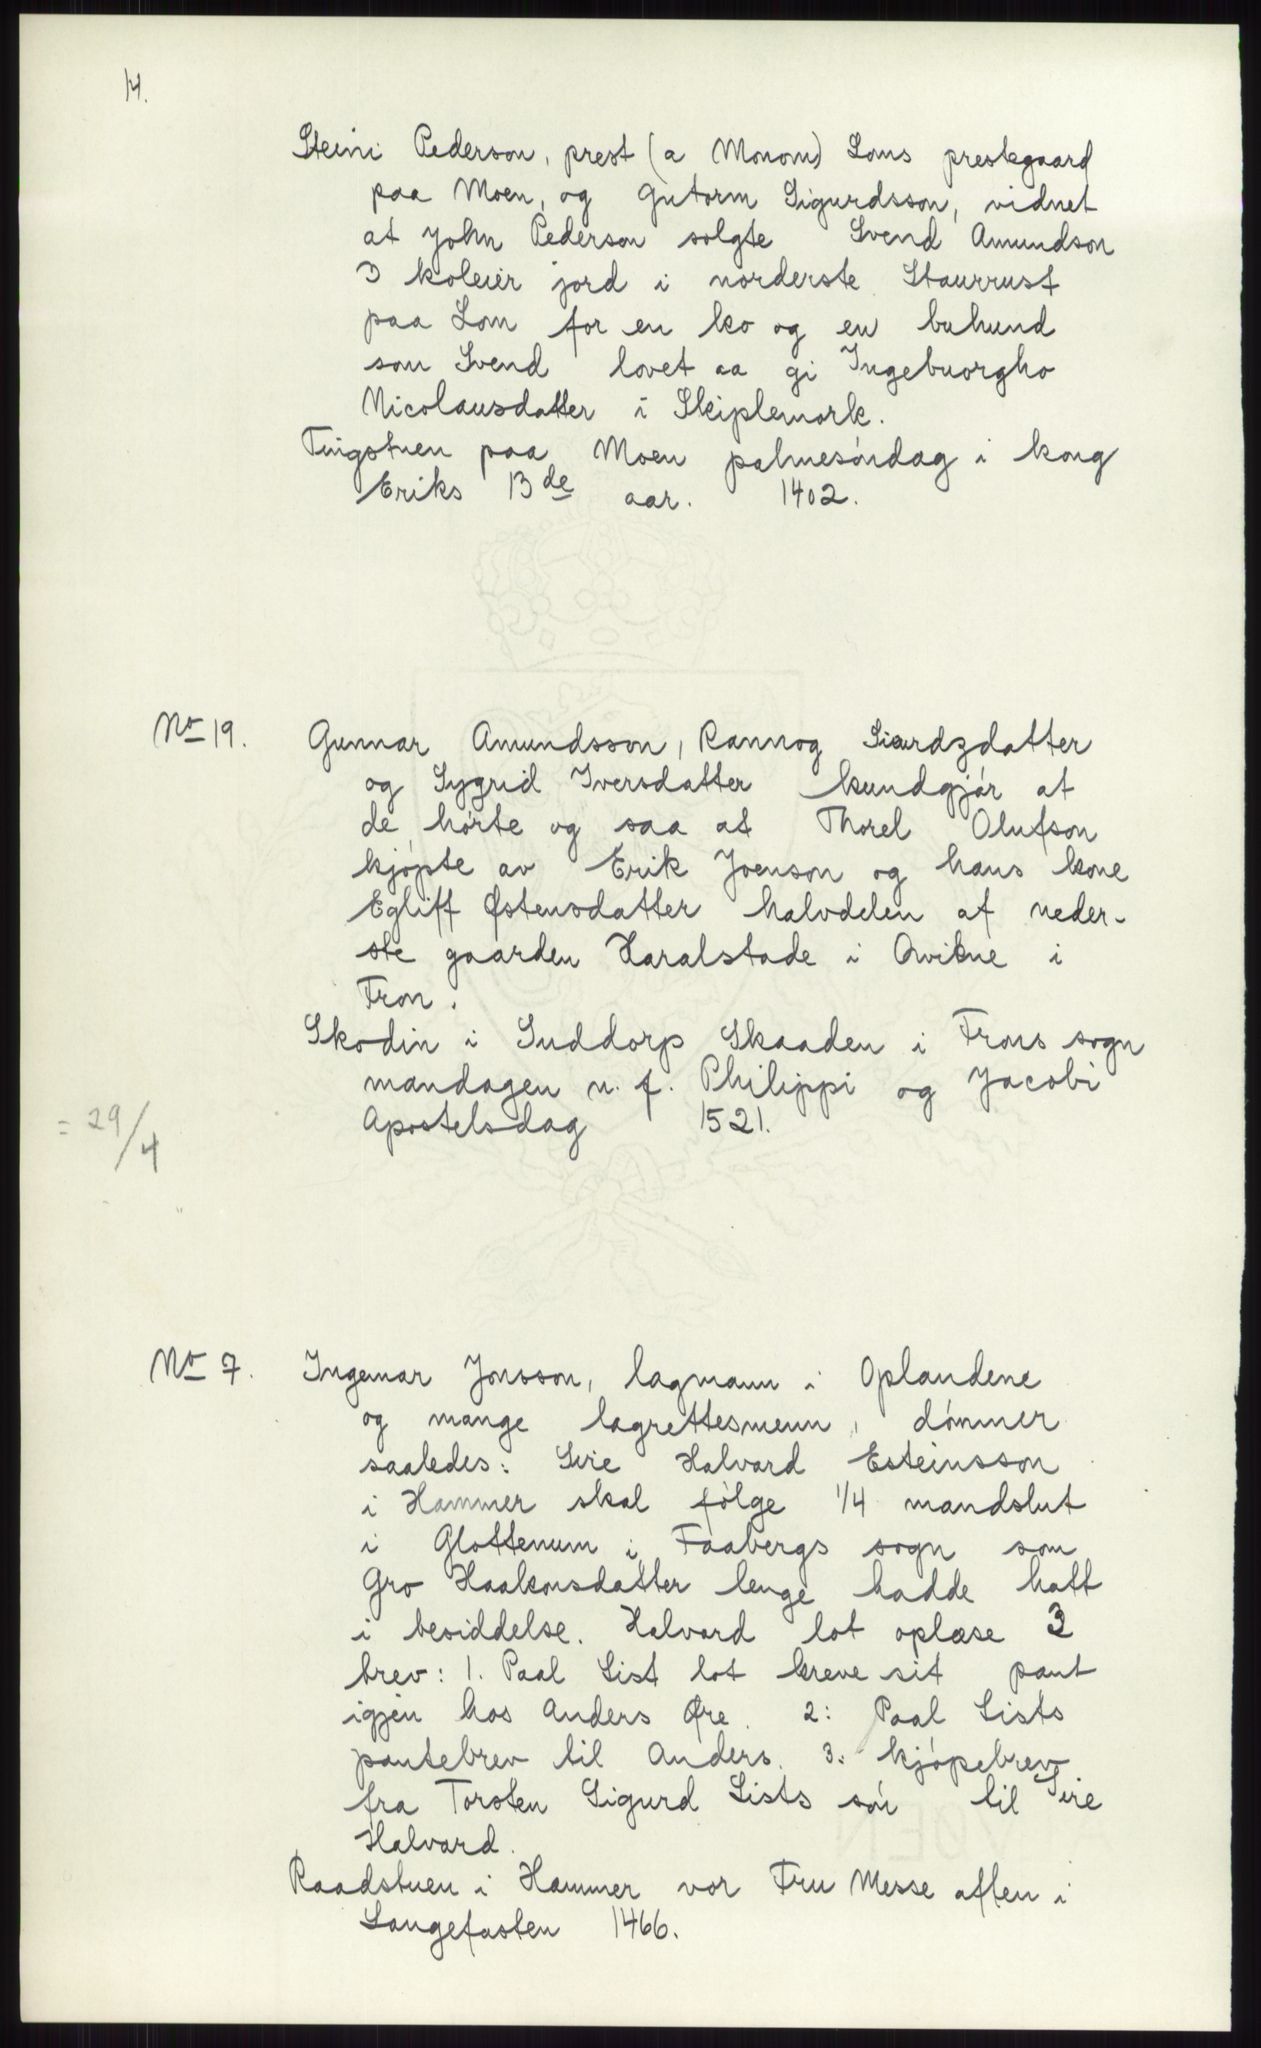 14.
Steini Pederson, prest (a Monom) Loms prestegaard
paa Moen, og Gutorm Sigurdsson, vidnet
at John Pederson solgte Svend Amundson
3 koleier jord i norderste Staurrust
paa Lom for en ko og en buhund
som Svend lovet aa gi Ingebuorgho
Nicolausdatter i Skiplemork.
Tingstuen paa Moen palmesöndag i kong
Eriks 13de aar. 1402.
No 19. Gunnar Amundsson, Rannog Siurdzdatter
og Sygrid Iversdatter kundgjör at
de hörte og saa at Thorel Olufson
kjöpte av Erik Joenson og hans kone
Egliff Østensdatter halvdelen af neder-
ste gaarden Haralstade i Qvikne i
Fron.
Skodin i Suddorp Skaaden i Frons sogn
mandagen n. f. Philippi og Jacobi
= 29/4 Apostelsdag 1521.
No 7. Ingemar Jonsson, lagmann i Oplandene
og mange lagrettesmenn, dömmer
saaledes: Sire Halvard Esteinsson
i Hammer skal fölge 1/4 mandslut
i Glottenum i Faabergs sogn som
Gro Haakonsdatter lenge hadde hatt
i besiddelse. Halvard lot oplæse 3
brev: 1. Paal List lot kreve sit pant
igjen hos Anders Øre. 2: Paal Lists
pantebrev til Anders. 3: kjöpebrev
fra Torsten Sigurd Lists sön til Sire
Halvard.
Raadstuen i Hammer vor Fru Messe aften i
Langefasten 1466.